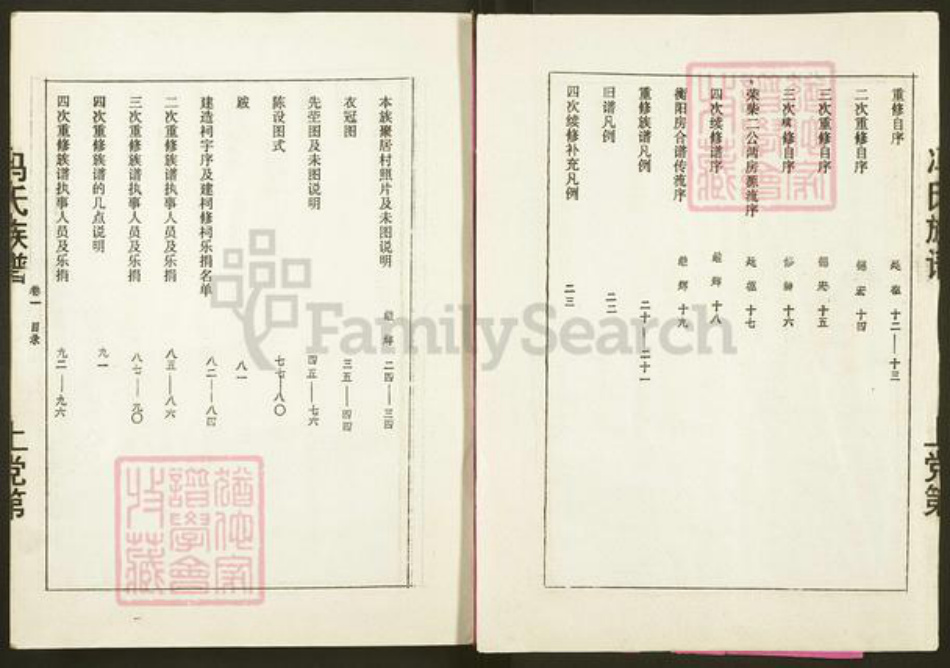 重修自序 十二——十三
二次重修自序 十四
三次重修自序 十五
三次续修自序 十六
荣柴二公两房源流序 十七
四次续修谱序 十八
衡阳房合谱传流序 十九
重修族谱凡例 二十——二十一
旧谱凡例 二二
四次续修补充凡例 二三
上党第
本族聚居村照片及未图说明 二四——三四
衣冠图 三五——四四
先茔图及未图说明 四五——七六
陈设图式 七七——八〇
跋 八一
建造祠宇序及建祠修祠乐捐名单 八二——八四
二次重修族谱执事人员及乐捐 八五——八六
三次重修族谱执事人员及乐捐 八七——九〇
四次重修族谱的几点说明 九一
四次重修族谱执事人员及乐捐 九二——九六
冯氏族谱 卷一 目录 上党第
FamilySearch